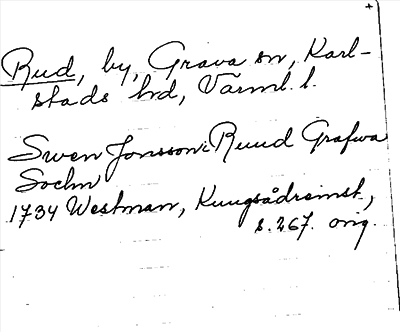 Rud, by, Grava sn, Karl-
stads hd, Värml. l.
Swen Jonsson i Ruud Grafwa
Sochn
1734 Westman, Kungsådremst,
s. 267. orig.